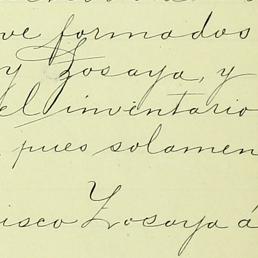 ve formados
y Zosaya, y
el inventario
pues solamen
isco Zosaya á